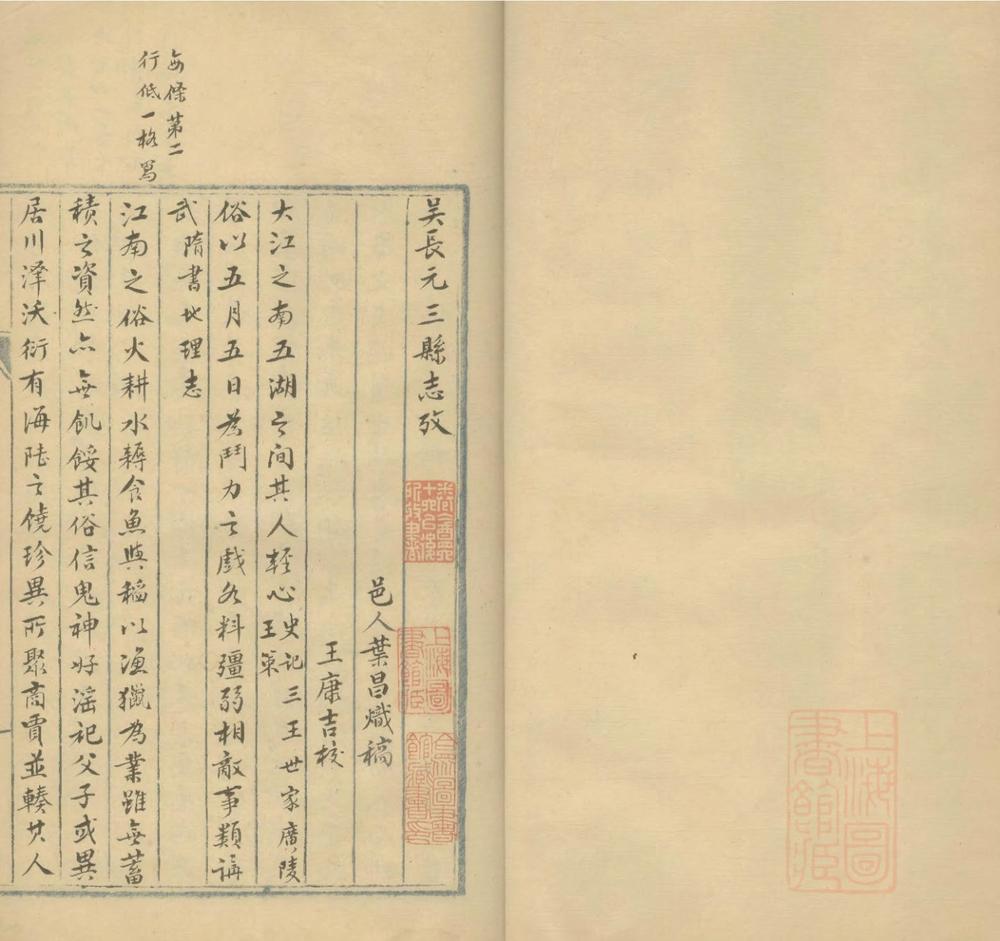 上海圖
書館藏
每條第二
行低一格寫
吴長元三縣志攷
上海圖
書館藏
合眾圖書
館藏書印
邑人葉昌熾稿
王康吉校
大江之南五湖之间其人輕心史記三王世家廣陵
王策
俗以五月五日為鬥力之戲各料彊弱相敵事類講
武隋書地理志
江南之俗火耕水耨食魚與稻以漁獵為業雖無蓄
積之資然亦無飢餒其俗信鬼神好滛祀父子或異
居川澤沃衍有海陸之饒珍異所聚商賈並輳其人